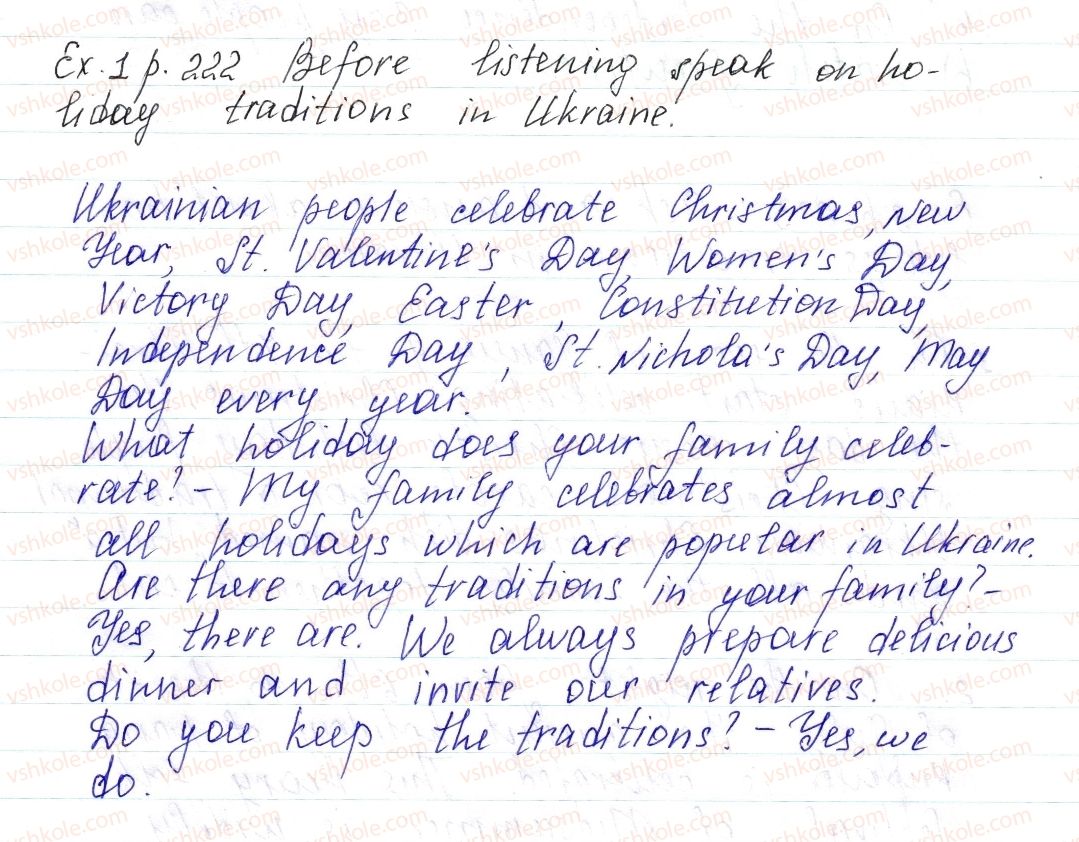 Ex. 1 p. 222 Before listening speak on ho-
liday traditions in Ukraine.
Ukrainian people celebrate Christmas, New
Year, St. Valentine's Day, Women's Day,
Victory Day, Easter, Constitution Day,
Independence Day, St. Nichola's Day, May
Day every year.
What holiday does your family celeb-
rate? - My family celebrates almost
all holidays which are popular in Ukraine.
Are there any traditions in your family? -
Yes, there are. We always prepare delicious
dinner and invite our relatives.
Do you keep the traditions? - Yes, we
do.